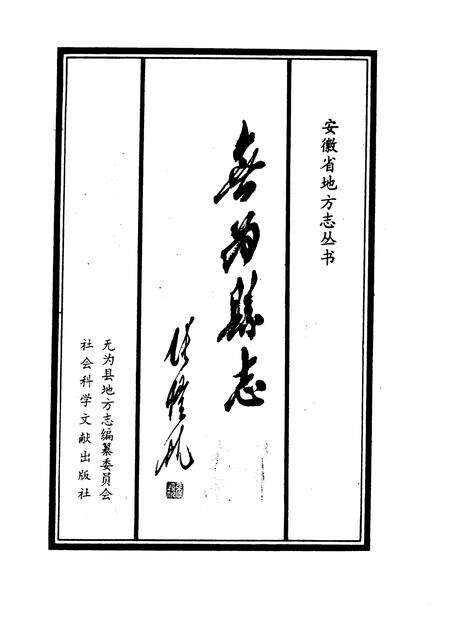 安徽省地方志丛书
無为縣志
任惟凡
无为县地方志编纂委员会
社会科学文献出版社